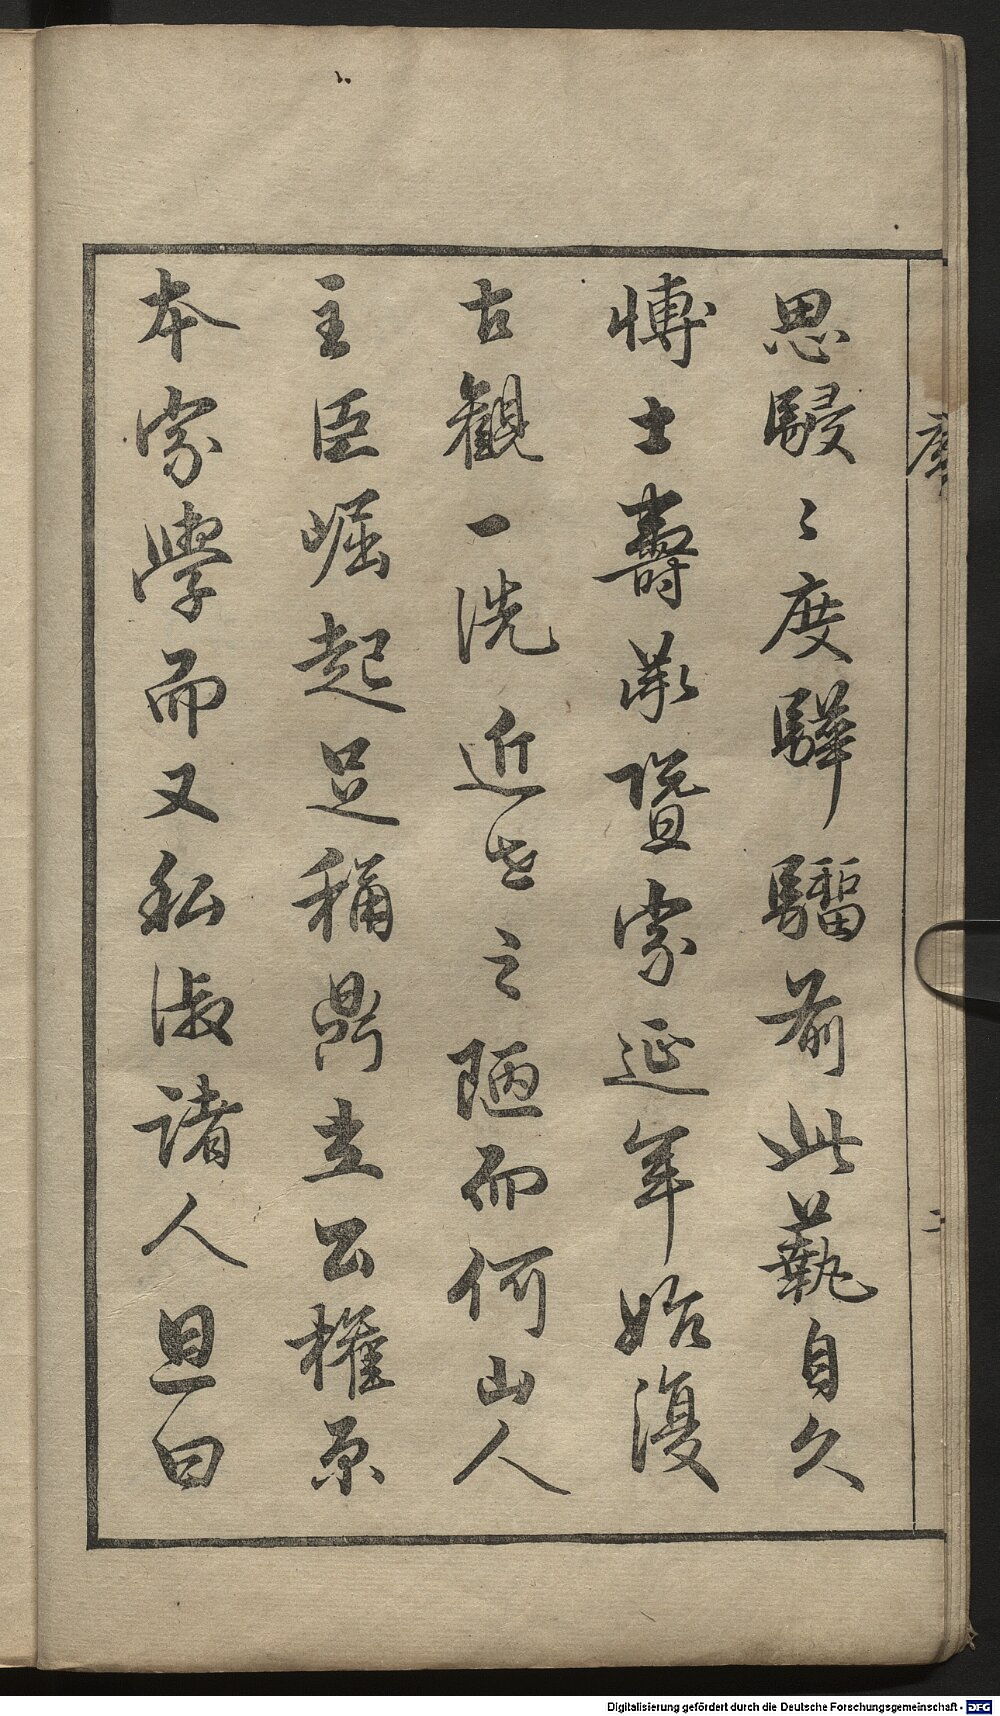 思駸〻度驊騮前此藝自久
愽士壽承暨家延年始復
古觀一洗近世之陋而何山人
主臣崛起足稱鼎立公權原
本家學而又私淑諸人且曰
Digitalisierung gefördert durch die Deutsche Forschungsgemeinschaft - DFG